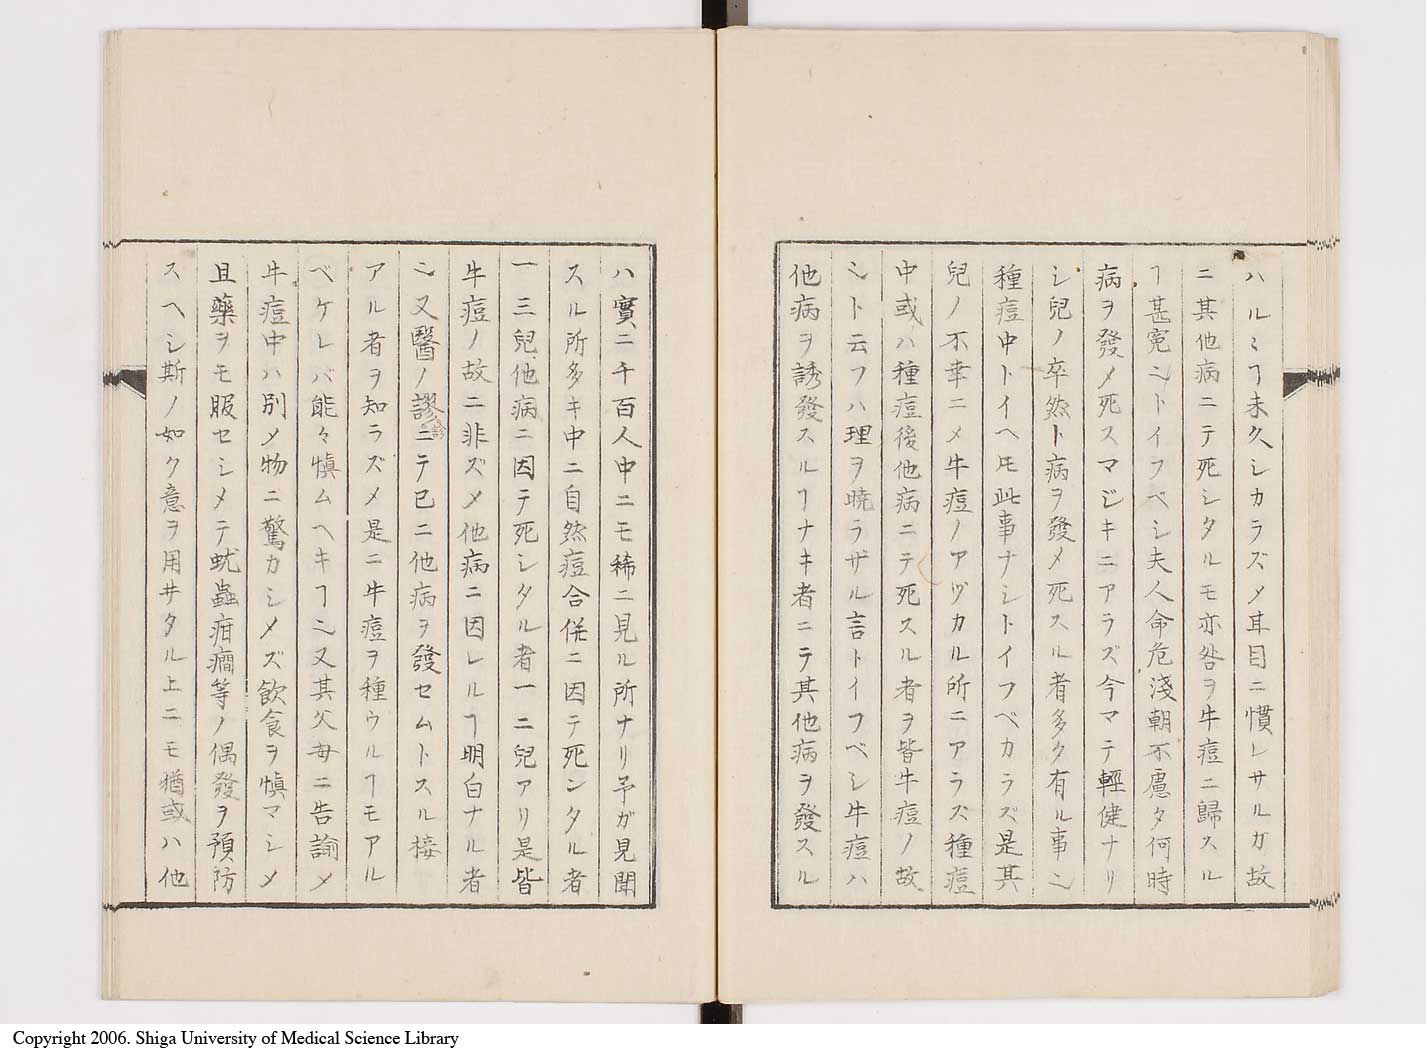 ハルヽヿ未久シカラズメ耳目ニ慣レサルガ故
ニ其他病ニテ死シタルモ亦咎ヲ牛痘ニ歸スル
ヿ甚寃ニトイフベシ夫人命危淺朝不慮タ何時
病ヲ發メ死スマジキニアラズ今マテ輕健ナリ
シ兒ノ卒然ト病ヲ發メ死スル者多ク有ル事ニ
種痘中トイヘ𪜈此事ナシトイフベカラズ是其
兒ノ不幸ニメ牛痘ノアヅカル所ニアラズ種痘
中或ハ種痘後他病ニテ死スル者ヲ皆牛痘ノ故
ニト云フハ理ヲ曉ラザル言トイフベシ牛痘ハ
他病ヲ誘發スルヿナキ者ニテ其他病ヲ發スル
ハ實ニ千百人中ニモ稀ニ見ル所ナリ予ガ見聞
スル所多キ中ニ自然痘合併ニ因テ死シタル者
一三兒他病ニ因テ死シタル者一二兒アリ是皆
牛痘ノ故ニ非ズメ他病ニ因レルヿ明白ナル者
ニ又醫ノ謬診ニテ已ニ他病ヲ發セムトスル接
アル者ヲ知ラズメ是ニ牛痘ヲ種ウルヿモアル
ベケレバ能々愼ムヘキヿニ又其父母ニ告諭メ
牛痘中ハ別メ物ニ驚カシメズ飮食ヲ愼マシメ
且藥ヲモ服セシメテ蚘蟲疳癇等ノ偶發ヲ預防
スヘシ斯ノ如ク意ヲ用井タル上ニモ猶或ハ他
Copyright 2006. Shiga University of Medical Science Library